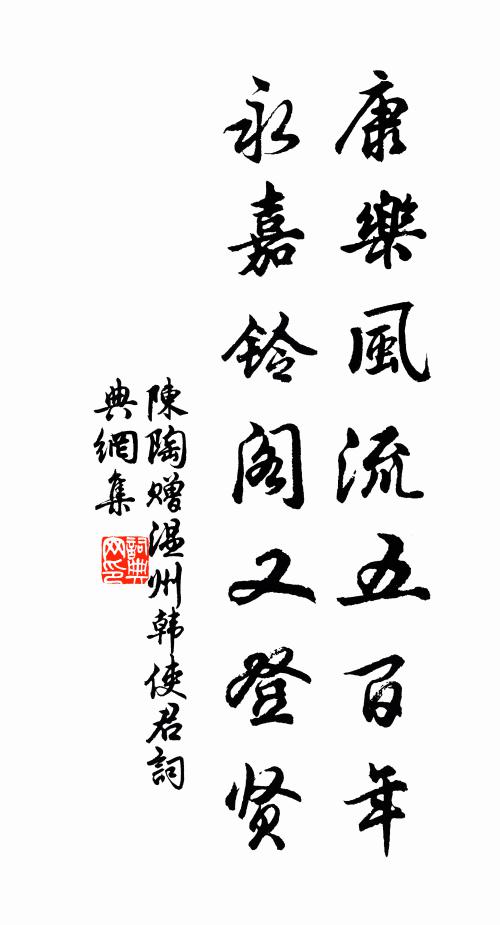 康樂風流五百年
永嘉鈴阁又登贤
陳陶贈温州韩使君詞
典網集
詞典
网印